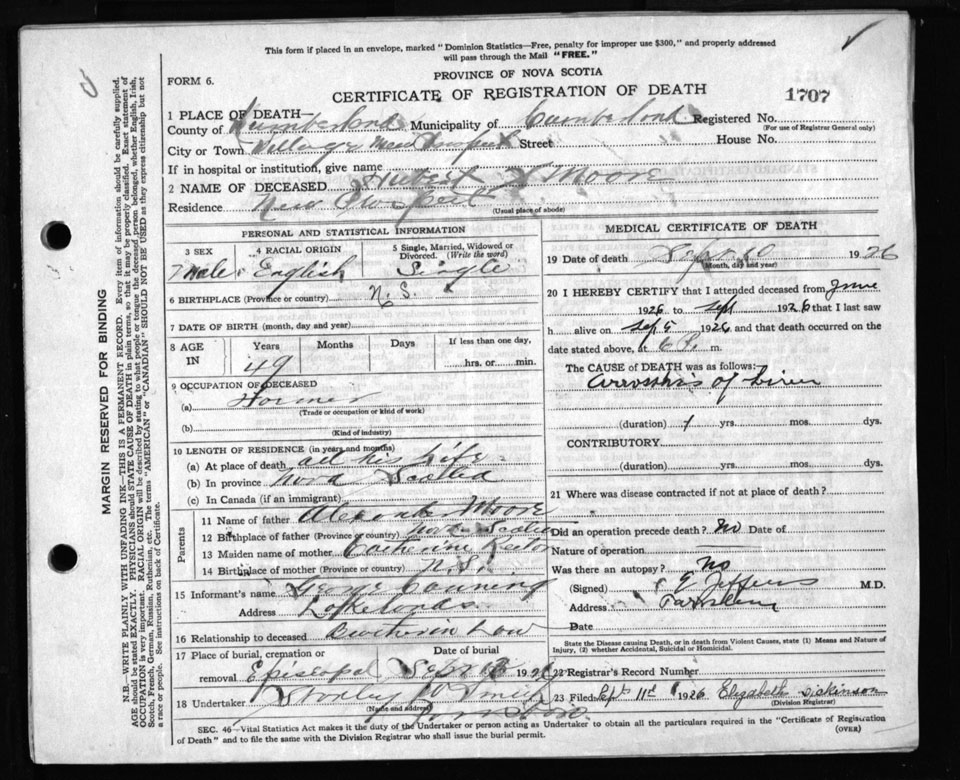 This form if placed in an envelope, marked "Dominion Statistics—Free, penalty for improper use $300," and properly addressed
will pass through the Mail "FREE."
FORM 6.
PROVINCE OF NOVA SCOTIA
CERTIFICATE OF REGISTRATION OF DEATH
1707
1 PLACE OF DEATH—
County of Cumberland Municipality of Cumberland Registered No.
(For use of Registrar General only)
City or Town Village New Prospect Street House No.
If in hospital or institution, give name
2 NAME OF DECEASED Hubert Moore
Residence New Prospect
(Usual place of abode)
PERSONAL AND STATISTICAL INFORMATION
3 SEX Male
4 RACIAL ORIGIN English
5 Single, Married, Widowed or Divorced. (Write the word) Single
6 BIRTHPLACE (Province or country) N. S.
7 DATE OF BIRTH (month, day and year)
8 AGE IN Years 49 Months Days If less than one day, hrs. or min.
9 OCCUPATION OF DECEASED
(a) Farmer
(Trade or occupation or kind of work)
(b)
(Kind of industry)
10 LENGTH OF RESIDENCE (in years and months)
(a) At place of death all his life
(b) In province Nova Scotia
(c) In Canada (if an immigrant)
Parents
11 Name of father Alexander Moore
12 Birthplace of father (Province or country) Nova Scotia
13 Maiden name of mother Catherine
14 Birthplace of mother (Province or country) N. S.
15 Informant's name George Canning
Address Lakelands
16 Relationship to deceased Brother in Law
17 Place of burial, cremation or removal Episcopal
Date of burial Sept 1926
18 Undertaker
(Name and address)
MEDICAL CERTIFICATE OF DEATH
19 Date of death Sept 10 1926
(Month, day and year)
20 I HEREBY CERTIFY that I attended deceased from June
1926 to Sept 1926 that I last saw
h alive on Sep 5 1926, and that death occurred on the
date stated above, at 6 P. m.
The CAUSE OF DEATH was as follows:
Cirrosshis of Liver
(duration) 1 yrs. mos. dys.
CONTRIBUTORY
(duration) yrs. mos. dys.
21 Where was disease contracted if not at place of death?
Did an operation precede death? No Date of
Nature of operation
Was there an autopsy? No
(Signed) M.D.
Address Parrsboro
Date
State the Disease causing Death, or in death from Violent Causes, state (1) Means and Nature of
Injury, (2) whether Accidental, Suicidal or Homicidal.
22 Registrar's Record Number
23 Filed Sept 11th 1926 Elizabeth Dickinson
(Division Registrar)
SEC. 46—Vital Statistics Act makes it the duty of the Undertaker or person acting as Undertaker to obtain all the particulars required in the "Certificate of Registration
of Death" and to file the same with the Division Registrar who shall issue the burial permit.
(OVER)
MARGIN RESERVED FOR BINDING
N.B.—WRITE PLAINLY WITH UNFADING INK—THIS IS A PERMANENT RECORD. Every item of information should be carefully supplied.
AGE should be stated EXACTLY. PHYSICIANS should STATE CAUSE OF DEATH in plain terms, so that it may be properly classified. Exact statement of
OCCUPATION is very important. RACIAL ORIGIN will be described by stating to what people or tongue the deceased person belonged, whether English, Irish,
Scotch, French, German, Russian, Ruthenian, etc. The terms "AMERICAN" or "CANADIAN" SHOULD NOT BE USED as they express citizenship but not
a race or people. See instructions on back of Certificate.